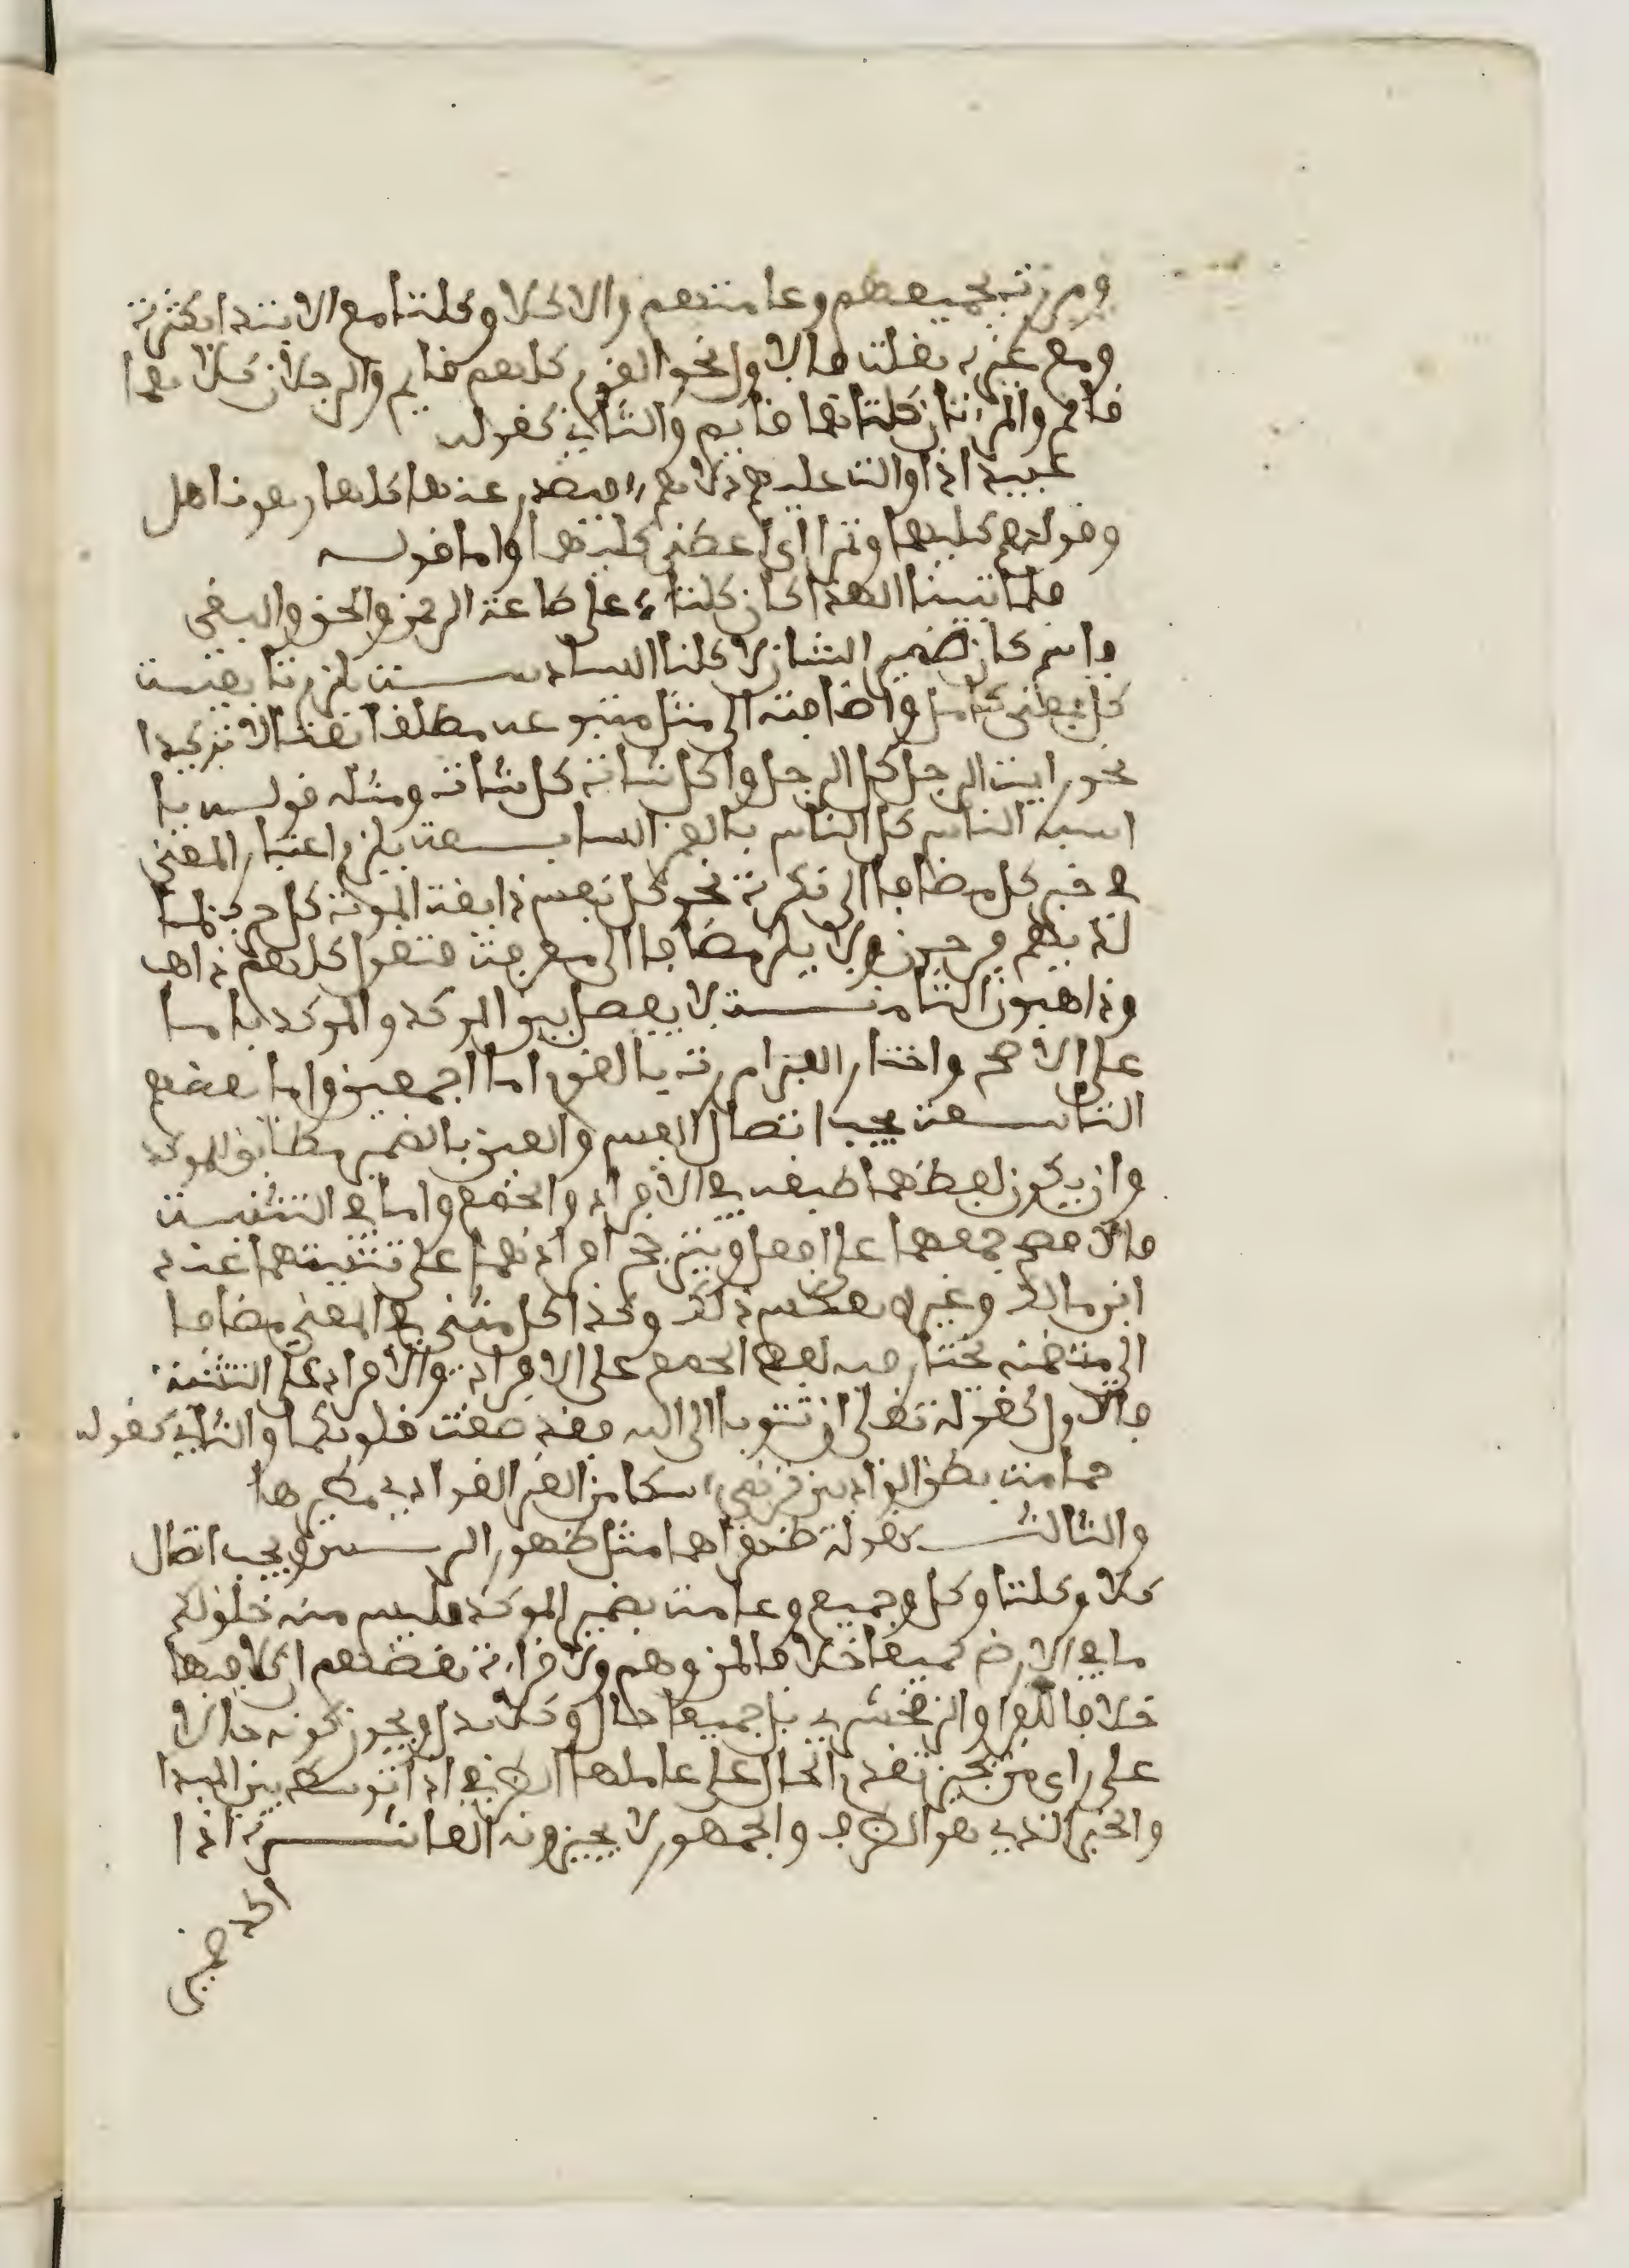 ومررت بجميعهم وعامتهم والا كلا وكلتا مع الابتداء بكثرة
ومع غيره بقلت فالاول نحو القوم كلهم قايم والرجلان كلاهما
قائم والمرءتان كلتاهما قايم والثاني كقوله
يميد اذا والت عليهم دلاؤهم فيصدر عنها كلها وهو ناهل
وقولهم كليهما وتمرا اي اعطني كليهما واما قوله
فلما تبينا الهدى كان كلنا على طاعة الرحمن والحق والتقى
فاسم كان ضمير الشان لا كلنا السادسة يلزم تابعيت
كل بمعنى كامل واضافته الى مثل متبوعه مطلقا نعتا لا توكيدا
نحو رايت الرجل كل الرجل واكل شاة كل شاة ومثله قوله يا
اشبه الناس كل الناس بالقمر السابعة يلزم اعتبار المعنى
في خبر كل مضافا الى نكرة نحو كل نفس ذايقة الموت كل حزب بما
لديهم فرحون ولا يلزم مضافا الى معرفت فتقول كلهم ذاهب
وذاهبون الثامنة لا يفصل بين الموكد والموكد باما
على الاصح واختار الفرا مررت بالقوم اما اجمعين واما بعضهم
التاسعة يجب اتصال النفس والعين بالضمير مطابق للموكد
وان يكون لفظهما طبقه في الافراد والجمع واما في التثنيت
فالافصح جمعهما على افعل ويترجح افرادهما على تثنيتهما عند
ابن مالك وغيره بعكس ذلك وكذا كل مثنى في المعنى مضافا
الى متضمنه يختار فيه لفظ الجمع على الافراد والافراد على التثنية
فالاول كقوله تعلى ان تتوبا الى الله فقد صغت قلوبكما والثاني كقوله
حمامة بطن الواديين ترنمي سقاك من الغر الغوادي مطيرها
والثالث كقوله ظهراهما مثل ظهور الترسين ويجب اتصال
كلا وكلتا وكل وجميع وعامة بضمير الموكد فليس منه خلق لكم
ما في الارض جميعا خلافا لمن وهم ولا قراءة بعضهم انا كلا فيها
خلافا للفرا والزمخشري بل جميعا حال وكلا بدل ويجوز كونه حالا
على راي من يجيز تقديم الحال على عاملها الظرفي اذا توسط بين المبتدا
والخبر الذي هو الظرف والجمهور لا يجيزونه العاشرة اذا
اكد ضمير